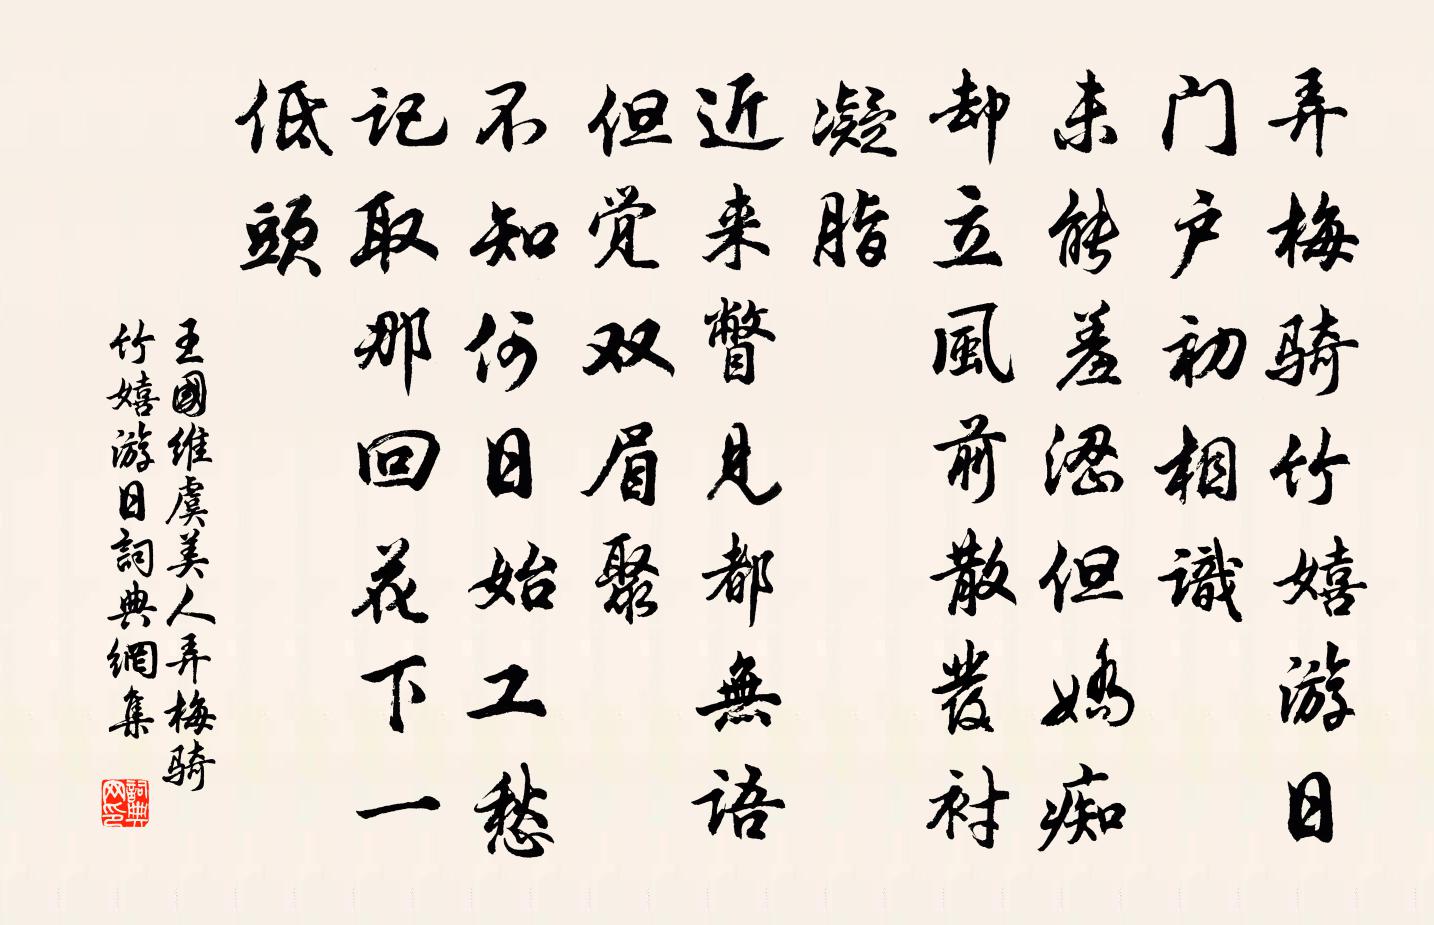 弄梅骑竹嬉游日
门户初相識
未能羞澀但嬌痴
却立風前散發衬
凝脂
近来瞥見都無語
但觉双眉聚
不知何日始工愁
记取那回花下一
低頭
王國维虞美人弄梅骑
竹嬉游日詞典網集
詞典
网印